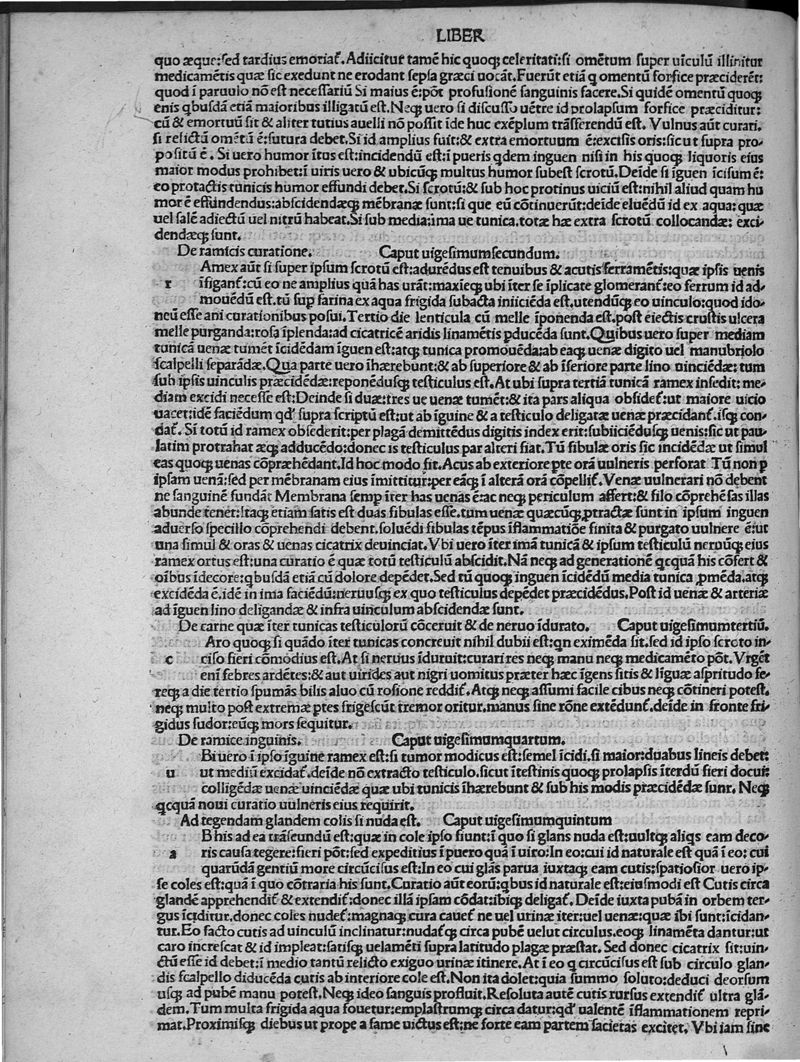 LIBER
quo æque: sed tardius emoriaſ. Adiicitur tamē hic quoq; celeritati: si omētum super uīculū illinitur
medicamētis quæ sic exedunt ne erodant sepſa græci uocāt. Fuerūt etiā q omentū forfice præciderēt:
quod ī paruulo nō est necessariū Si maius ē: pōt profusionē sanguinis facere. Si quidē omentū quoq;
enis qbusdā etiā maioribus illigatū est. Neq; uero si discusso uētre id prolapsum forfice præciditur:
cū & emortuū sit & aliter tutius auelli nō possit īde huc exēplum trāsferrendū est. Vulnus aūt curari.
si relictū omētū ē: sutura debet. Si id amplius fuit: & extra emortuum ē: excisis oris: sicut supra pro-
positū ē. Si uero humor ītus est: incidendū est: ī pueris qdem inguen nisi in his quoq; liquoris eius
maior modus prohibet: ī uiris uero & ubicūq; multus humor subest scrotū. Deīde si īguen icisum ē:
eo protactis tunicis humor effundi debet. Si scrotū: & sub hoc protinus uiciū est: nihil aliud quam hu
mor ē effundendus: abscidendæq; mēbranæ sunt: si que eū cōtinuerūt: deīde eluēdū id ex aqua: quæ
uel salē adiectū uel nitrū habeat. Si sub media: ima ue tunica. totæ hæ extra scrotū collocandæ: exci-
dendæq; sunt.
De ramicis curatione. Caput uigesimumsecundum.
Amex aūt si super ipsum scrotū est: adurēdus est tenuibus & acutis ferramētis: quæ ipsis uenis
r īfiganſ: cū eo ne amplius quā has urāt: maxieq; ubi īter se īplicate glomeranſ: eo ferrum id ad-
mouēdū est. tū sup farina ex aqua frigida subacta iniiciēda est. utendūq; eo uinculo: quod ido-
neū esse ani curationibus posui. Tertio die lenticula cū melle īponenda est. post eiectis crustis ulcera
melle purganda: rosa īplenda: ad cicatricē aridis linamētis pducēda sunt. Quibus uero super mediam
tunicā uenæ tumēt īcidēdam īguen est: atq; tunica promouēda: ab eaq; uenæ digito uel manubriolo
scalpelli separādæ. Qua parte uero īhærebunt: & ab superiore & ab īferiore parte lino uinciēdæ: tum
sub ipsis uinculis præcidēdæ: reponēdusq; testiculus est. At ubi supra tertiā tunicā ramex insedit: me-
diam excidi necesse est: Deinde si duæ: tres ue uenæ tumēt: & ita pars aliqua obsideſ: ut maiore uicio
uacet: idē faciēdum qd' supra scriptū est: ut ab īguine & a testiculo deligatæ uenæ præcidanſ. isq; con-
daſ. Si totū id ramex obsederit: per plagā demittēdus digitis index erit: subiiciēdusq; uenis: sic ut pau-
latim protrahat æq; adducēdo: donec is testiculus par alteri fiat. Tū fibulæ oris sic incidēdæ ut simul
eas quoq; uenas cōpræhēdant. Id hoc modo fit. Acus ab exteriore pte orā uulneris perforat Tū non p
ipsam uenā: sed per mēbranam eius īmittitur: per eāq; ī alterā orā cōpelliſ. Venæ uulnerari nō debent
ne sanguinē fundāt Membrana semp īter has uenas ē: ac neq; periculum affert: & filo cōprehēsas illas
abunde tenet: Itaq; etiam satis est duas fibulas esse. tum uenæ quæcūq; ptractæ sunt in ipsum inguen
aduerso specillo cōprehendi debent. soluēdi fibulas tēpus īflammatiōe finita & purgato uulnere ē: ut
una simul & oras & uenas cicatrix deuinciat. Vbi uero īter imā tunicā & ipsum testiculū neruūq; eius
ramex ortus est: una curatio ē quæ totū testiculū abscidit. Nā neq; ad generationē qcquā his cōfert &
oībus īdecore: qbusdā etiā cū dolore depēdet. Sed tū quoq; inguen īcidēdū media tunica pmēda. atq;
excidēda ē. idē in ima faciēdū: neruusq; ex quo testiculus depēdet præcidēdus. Post id uenæ & arteriæ
ad īguen lino deligandæ & infra uinculum abscidendæ sunt.
De carne quæ īter tunicas testiculorū cōceruit & de neruo īdurato. Caput uigesimumtertiū.
Aro quoq; si quādo īter tunicas concreuit nihil dubii est: qn eximēda sit. sed id ipso scroto in-
c ciso fieri cōmodius est. At si neruius īduruit: curari res neq; manu neq; medicamēto pōt. Vrgēt
enī febres ardētes: & aut uirides aut nigri uomitus præter hæc īgens sitis & līguæ aspritudo fe-
req; a die tertio spumās bilis aluo cū rosione reddiſ. Atq; neq; assumi facile cibus neq; cōtineri potest.
neq; multo post extremæ ptes frigescūt tremor oritur. manus sine rōne extēdunſ. deīde in fronte fri-
gidus sudor: eūq; mors sequitur.
De ramice inguinis. Caput uigesimumquartum.
Bi uero ī ipso īguine ramex est: si tumor modicus est: semel īcidi. si maior: duabus lineis debet:
u ut mediū excidaſ. deīde nō extracto testiculo. sicut ītestinis quoq; prolapsis īterdū fieri docui:
colligēdæ uenæ uinciēdæ quæ ubi tunicis īhærebunt & sub his modis præcidēdæ sunt. Neq;
qcquā noui curatio uulneris eius requirit.
Ad tegendam glandem colis si nuda est. Caput uigesimumquintum
B his ad ea trāseundū est: quæ in cole ipso fiunt: ī quo si glans nuda est: uultq; aliqs eam deco-
a ris causa tegere: fieri pōt: sed expeditius ī puero quā ī uiro: In eo: cui id naturale est quā ī eo: cui
quarūdā gentiū more circūcisus est: In eo cui glās parua iuxtaq; eam cutis: spatiosior uero ip-
se coles est: quā ī quo cōtraria his sunt. Curatio aūt eorū: qbus id naturale est: eiusmodi est Cutis circa
glandē apprehendiſ & extendiſ: donec illā ipsam cōdat: ibiq; deligaſ. Deīde iuxta pubā in orbem ter-
gus īciditur. donec coles nudeſ: magnaq; cura caueſ ne uel urinæ iter: uel uenæ: quæ ibi sunt: īcidan-
tur. Eo facto cutis ad uinculū inclinatur: nudaſq; circa pubē uelut circulus. eoq; linamēta dantur: ut
caro increscat & id impleat: satisq; uelamēti supra latitudo plagæ præstat. Sed donec cicatrix sit: uin-
ctū esse id debet: ī medio tantū relicto exiguo urinæ itinere. At ī eo q circūcisus est sub circulo glan-
dis scalpello diducēda cutis ab interiore cole est. Non ita dolet: quia summo soluto: deduci deorsum
usq; ad pubē manu potest. Neq; ideo sanguis profluit. Resoluta autē cutis rursus extendiſ ultra glā-
dem. Tum multa frigida aqua fouetur: emplastrumq; circa datur: qd' ualentē īflammationem repri-
mat. Proximisq; diebus ut prope a fame uictus est: ne forte eam partem sacietas excitet. Vbi iam sine